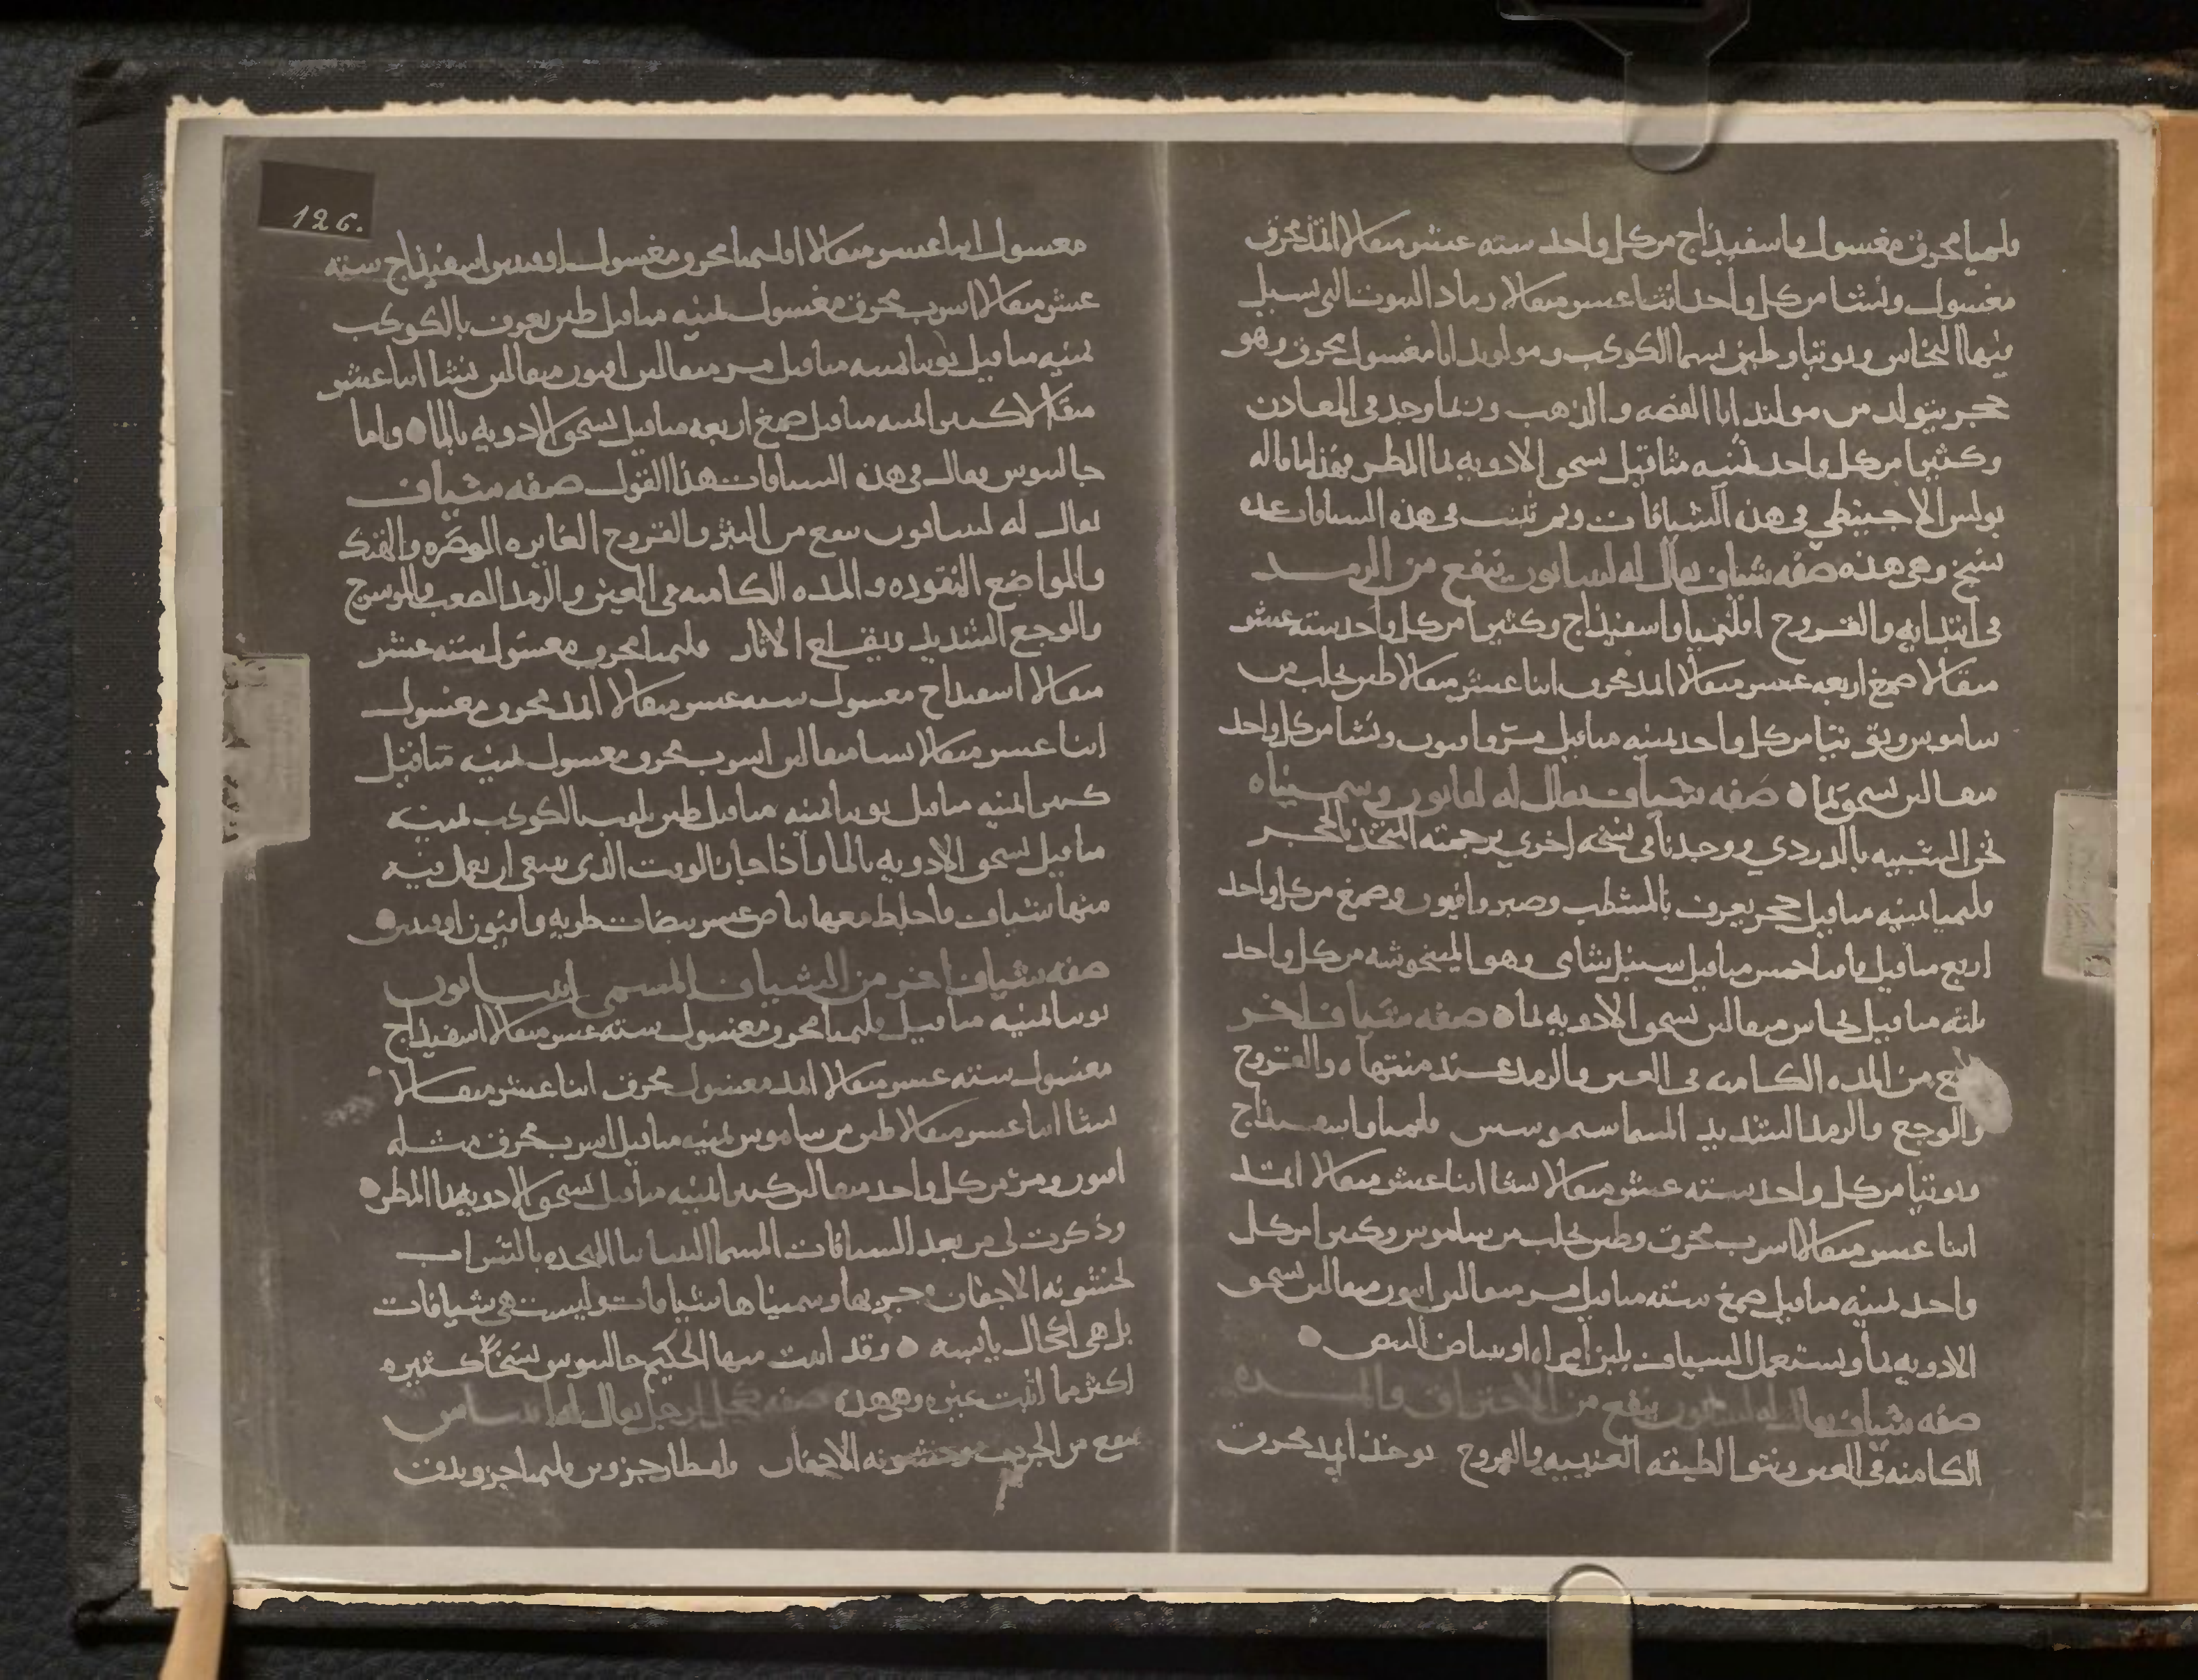 قليميا محرق مغسول واسفيذاج من كل واحد سته عشر مثقالا اثمد محرق
مغسول ونشا من كل واحد اثنا عشر مثقالا رماد البوت التي يسبل
فيها النحاس وتوتيا وطين يسما الكوكب ومولوبدانا مغسول محرق وهو
حجر يتولد من مولبدانا الفضه والذهب وربما وجد في المعادن
وكثيرا من كل واحد ثمنيه مثاقيل تسحق الادويه بما المطر فهذا ما قاله
بولس الاجنيطي في هذه الشيافات ولم تثبت في هذه الشيافات عده
نسخ وهي هذه صفه شياف يقال له لبيانون ينفع من الرمد
في ابتدايه والقروح اقليميا واسفيذاج وكثيرا من كل واحد سته عشر
مثقالا صمغ اربعه عشر مثقالا اثمد محرق اثنا عشر مثقالا طين يجلب من
ساموس وتوتيا من كل واحد ثمنيه مثاقيل مر وافيون ونشا من كل واحد
مثقالين تسحق بما صفه شياف يقال له وسميناه
نحن الشبيه بالدردي ووجدنا في نسخه اخري ترجمته المتخذ بالحجر
قليميا ثمنيه مثاقيل حجر يعرف بالمشطب وصبر وافيون وصمغ من كل واحد
اربع مثاقيل خمس مثاقيل سنبل شامي وهو المنجوشه من كل واحد
ثلثه مثاقيل نحاس مثقالين تسحق الادويه بما صفه شياف اخر
من المده الكامنه في العين والرمد عند منتهاه والقروح
والوجع والرمد الشديد المسما قليميا واسفيذاج
وتوتيا من كل واحد سته عشر مثقالا نشا اثنا عشر مثقالا اثمد
اثنا عشر مثقالا اسرب محرق وطين يجلب من ساموس وكثيرا من كل
واحد ثمنيه مثاقيل صمغ سته مثاقيل مر مثقالين افيون مثقالين تسحق
الادويه بما ويستعمل الشياف بلبن امراه او بياض البيض
صفه شياف يقال له ينفع من الاحتراق والمده
الكامنه في العين ونتو الطبقه العنبيه والقروح يوخذ اثمد محرق
126.
مغسول اثنا عشر مثقالا اقليميا محرق مغسول اسفيذاج سته
عشر مثقالا اسرب محرق مغسول ثمنيه مثاقيل طين يعرف بالكوكب
ثمنيه مثاقيل توتيا ثمنيه مثاقيل مر مثقالين افيون مثقالين نشا اثنا عشر
مثقالا كثيرا ثمنيه مثاقيل صمغ اربعه مثاقيل تسحق الادويه بالما واما
جالينوس يقال في هذه الشيافات هذا القول صفه شياف
يقال له لبيانون ينفع من البثر والقروح الغايره الوضره
والمواضع والمده الكامنه في العين والرمد الصعب
والوجع الشديد ويقلع الاثار قليميا محرق مغسول سته عشر
مثقالا اسفيذاج مغسول سته عشر مثقالا اثمد محرق مغسول
اثنا عشر مثقالا مثقالين اسرب محرق مغسول ثمنيه مثاقيل
كثيرا ثمنيه مثاقيل توتيا ثمنيه مثاقيل طين يلقب بالكوكب ثمنيه
مثاقيل تسحق الادويه بالما واذا حان الوقت الذي ينبغي ان يعمل فيه
منها شياف فاخلط معها بياض عشر بيضات طريه
صفه شياف اخر من الشياف المسمي
توتيا ثمنيه مثاقيل قليميا محرق مغسول سته عشر مثقالا اسفيذاج
مغسول سته عشر مثقالا اثمد مغسول محرق اثنا عشر مثقالا
نشا اثنا عشر مثقالا طين من ساموس ثمنيه مثاقيل اسرب محرق مثله
افيون ومر من كل واحد مثقالين كثيرا ثمنيه مثاقيل تسحق الادويه بما المطر
وذكرت لي من بعد الشيافات المسما المتخذه بالشراب
لخشونه الاجفان وجربها وسميناها شيافات وليست هي شيافات
بل هي اكحال يابسه وقد اثبت منها الحكيم جالينوس نسخا كثيره
اكثر مما اثبت غيره وهي هذه صفه كحل لرجل يقال له
ينفع من الجرب وخشونه الاجفان قلقطار جزوين قليميا جزو يدق